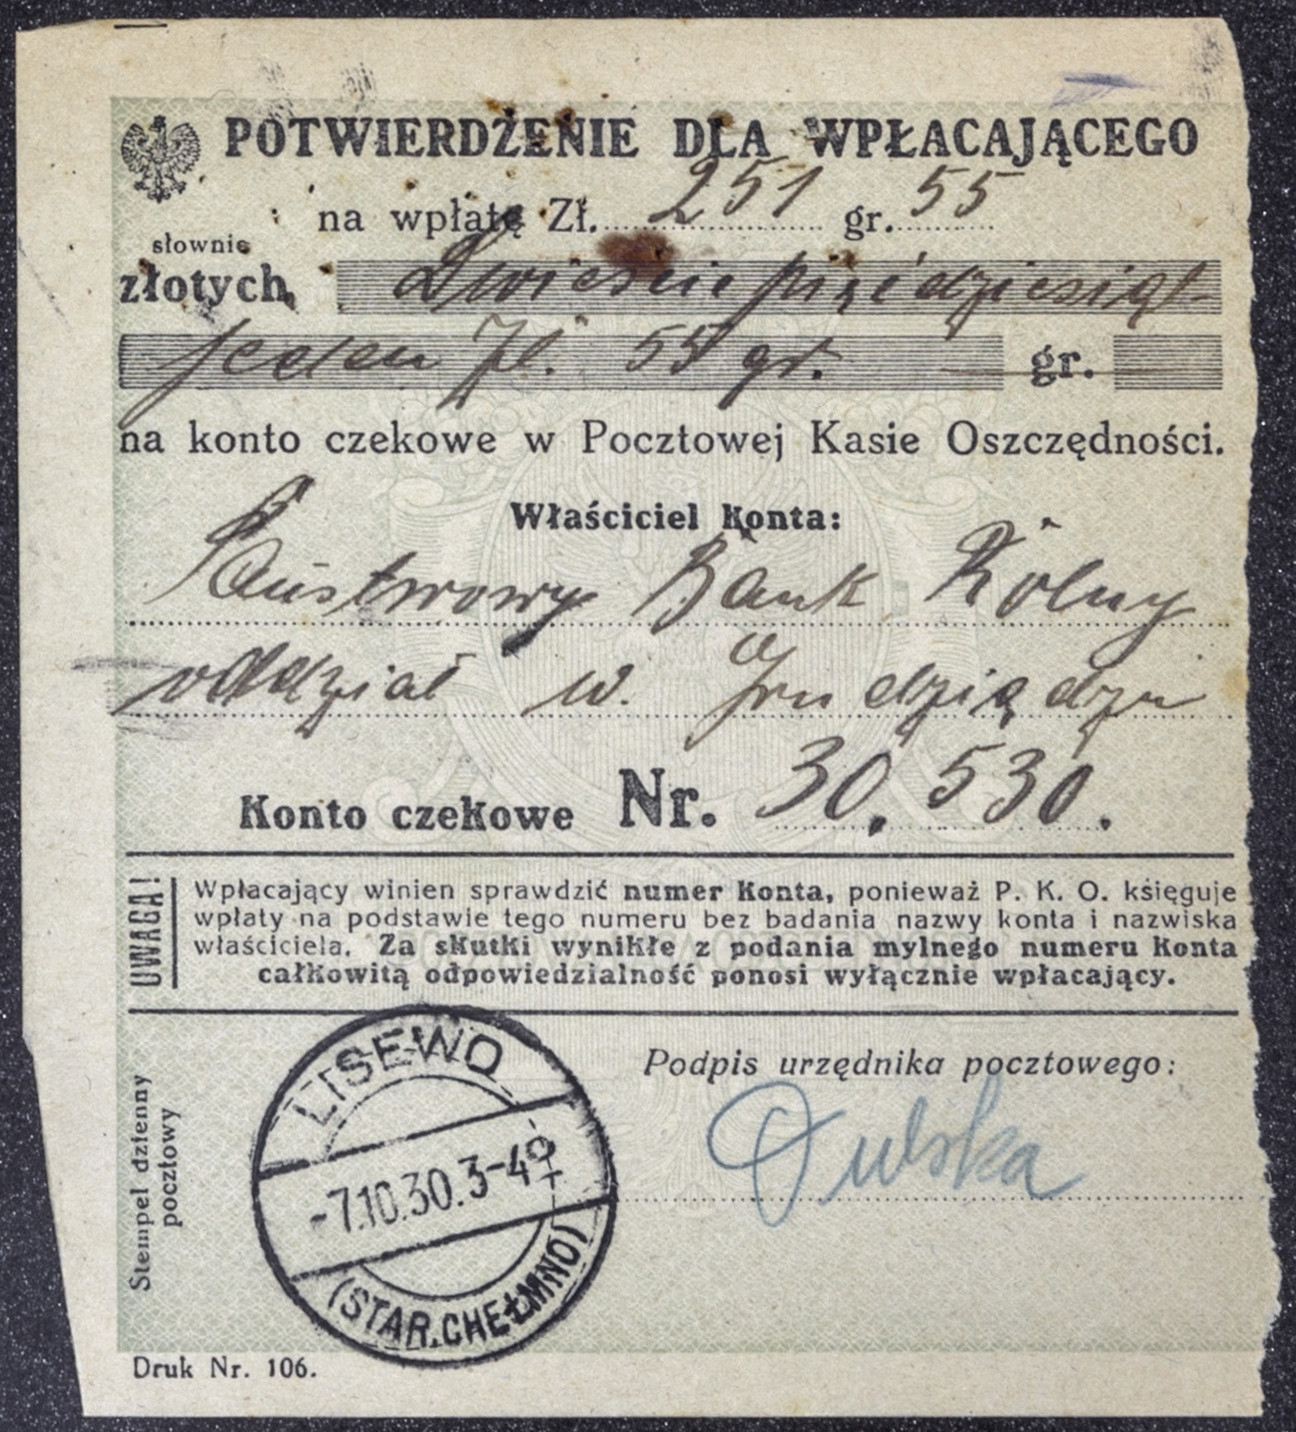 POTWIERDZENIE DLA WPŁACAJĄCEGO
na wpłatę Zł. 251 gr. 55
słownie
złotych Dwieście pięćdziesiąt
jeden zł. 55 gr. gr.
na konto czekowe w Pocztowej Kasie Oszczędności.
Właściciel Konta:
Państwowy Bank Rolny
oddział w. Grudziądzu
Konto czekowe Nr. 30.530.
UWAGA!
Wpłacający winien sprawdzić numer Konta, ponieważ P. K. O. księguje
wpłaty na podstawie tego numeru bez badania nazwy konta i nazwiska
właściciela. Za skutki wynikłe z podania mylnego numeru Konta
całkowitą odpowiedzialność ponosi wyłącznie wpłacający.
Stempel dzienny
pocztowy
LISEWO
-7.10.30.3-4
(STAR.CHEŁMNO)
Podpis urzędnika pocztowego:
Druk Nr. 106.